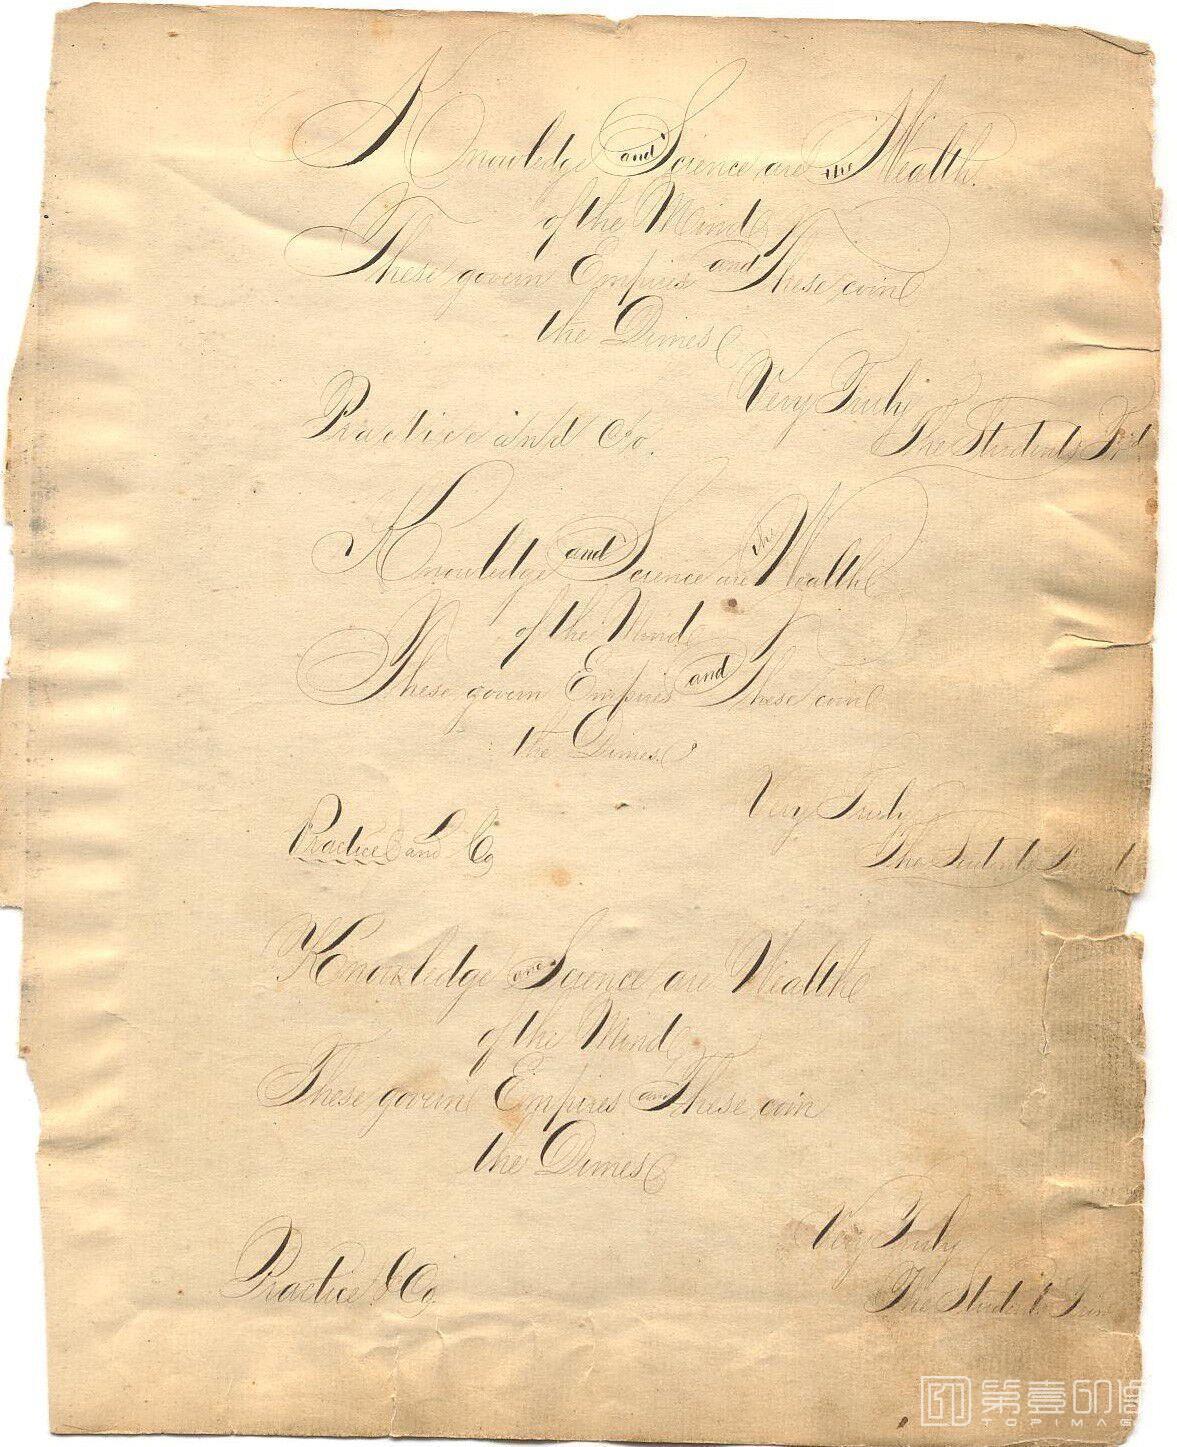 Knowledge and Science are the Wealth
of the Mind
These govern Empires and These coin
the Dimes
Very Truly
Practice and Co.
The Students Frd
Knowledge and Science are the Wealth
of the Mind
These govern Empires and These coin
the Dimes
Very Truly
Practice and Co
The Students Friend
Knowledge and Science are Wealth
of the Mind
These govern Empires and These coin
the Dimes
Very Truly
Practice & Co
The Students
第壹印像
TOPIMAG